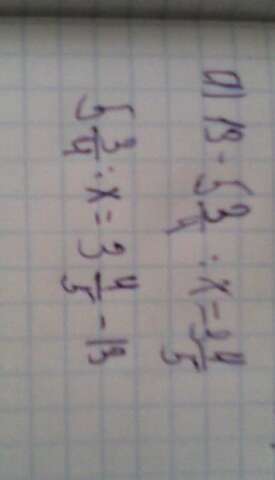 а) 13 - 5 3/4 : x = 3 4/5
5 3/4 : x = 3 4/5 - 13